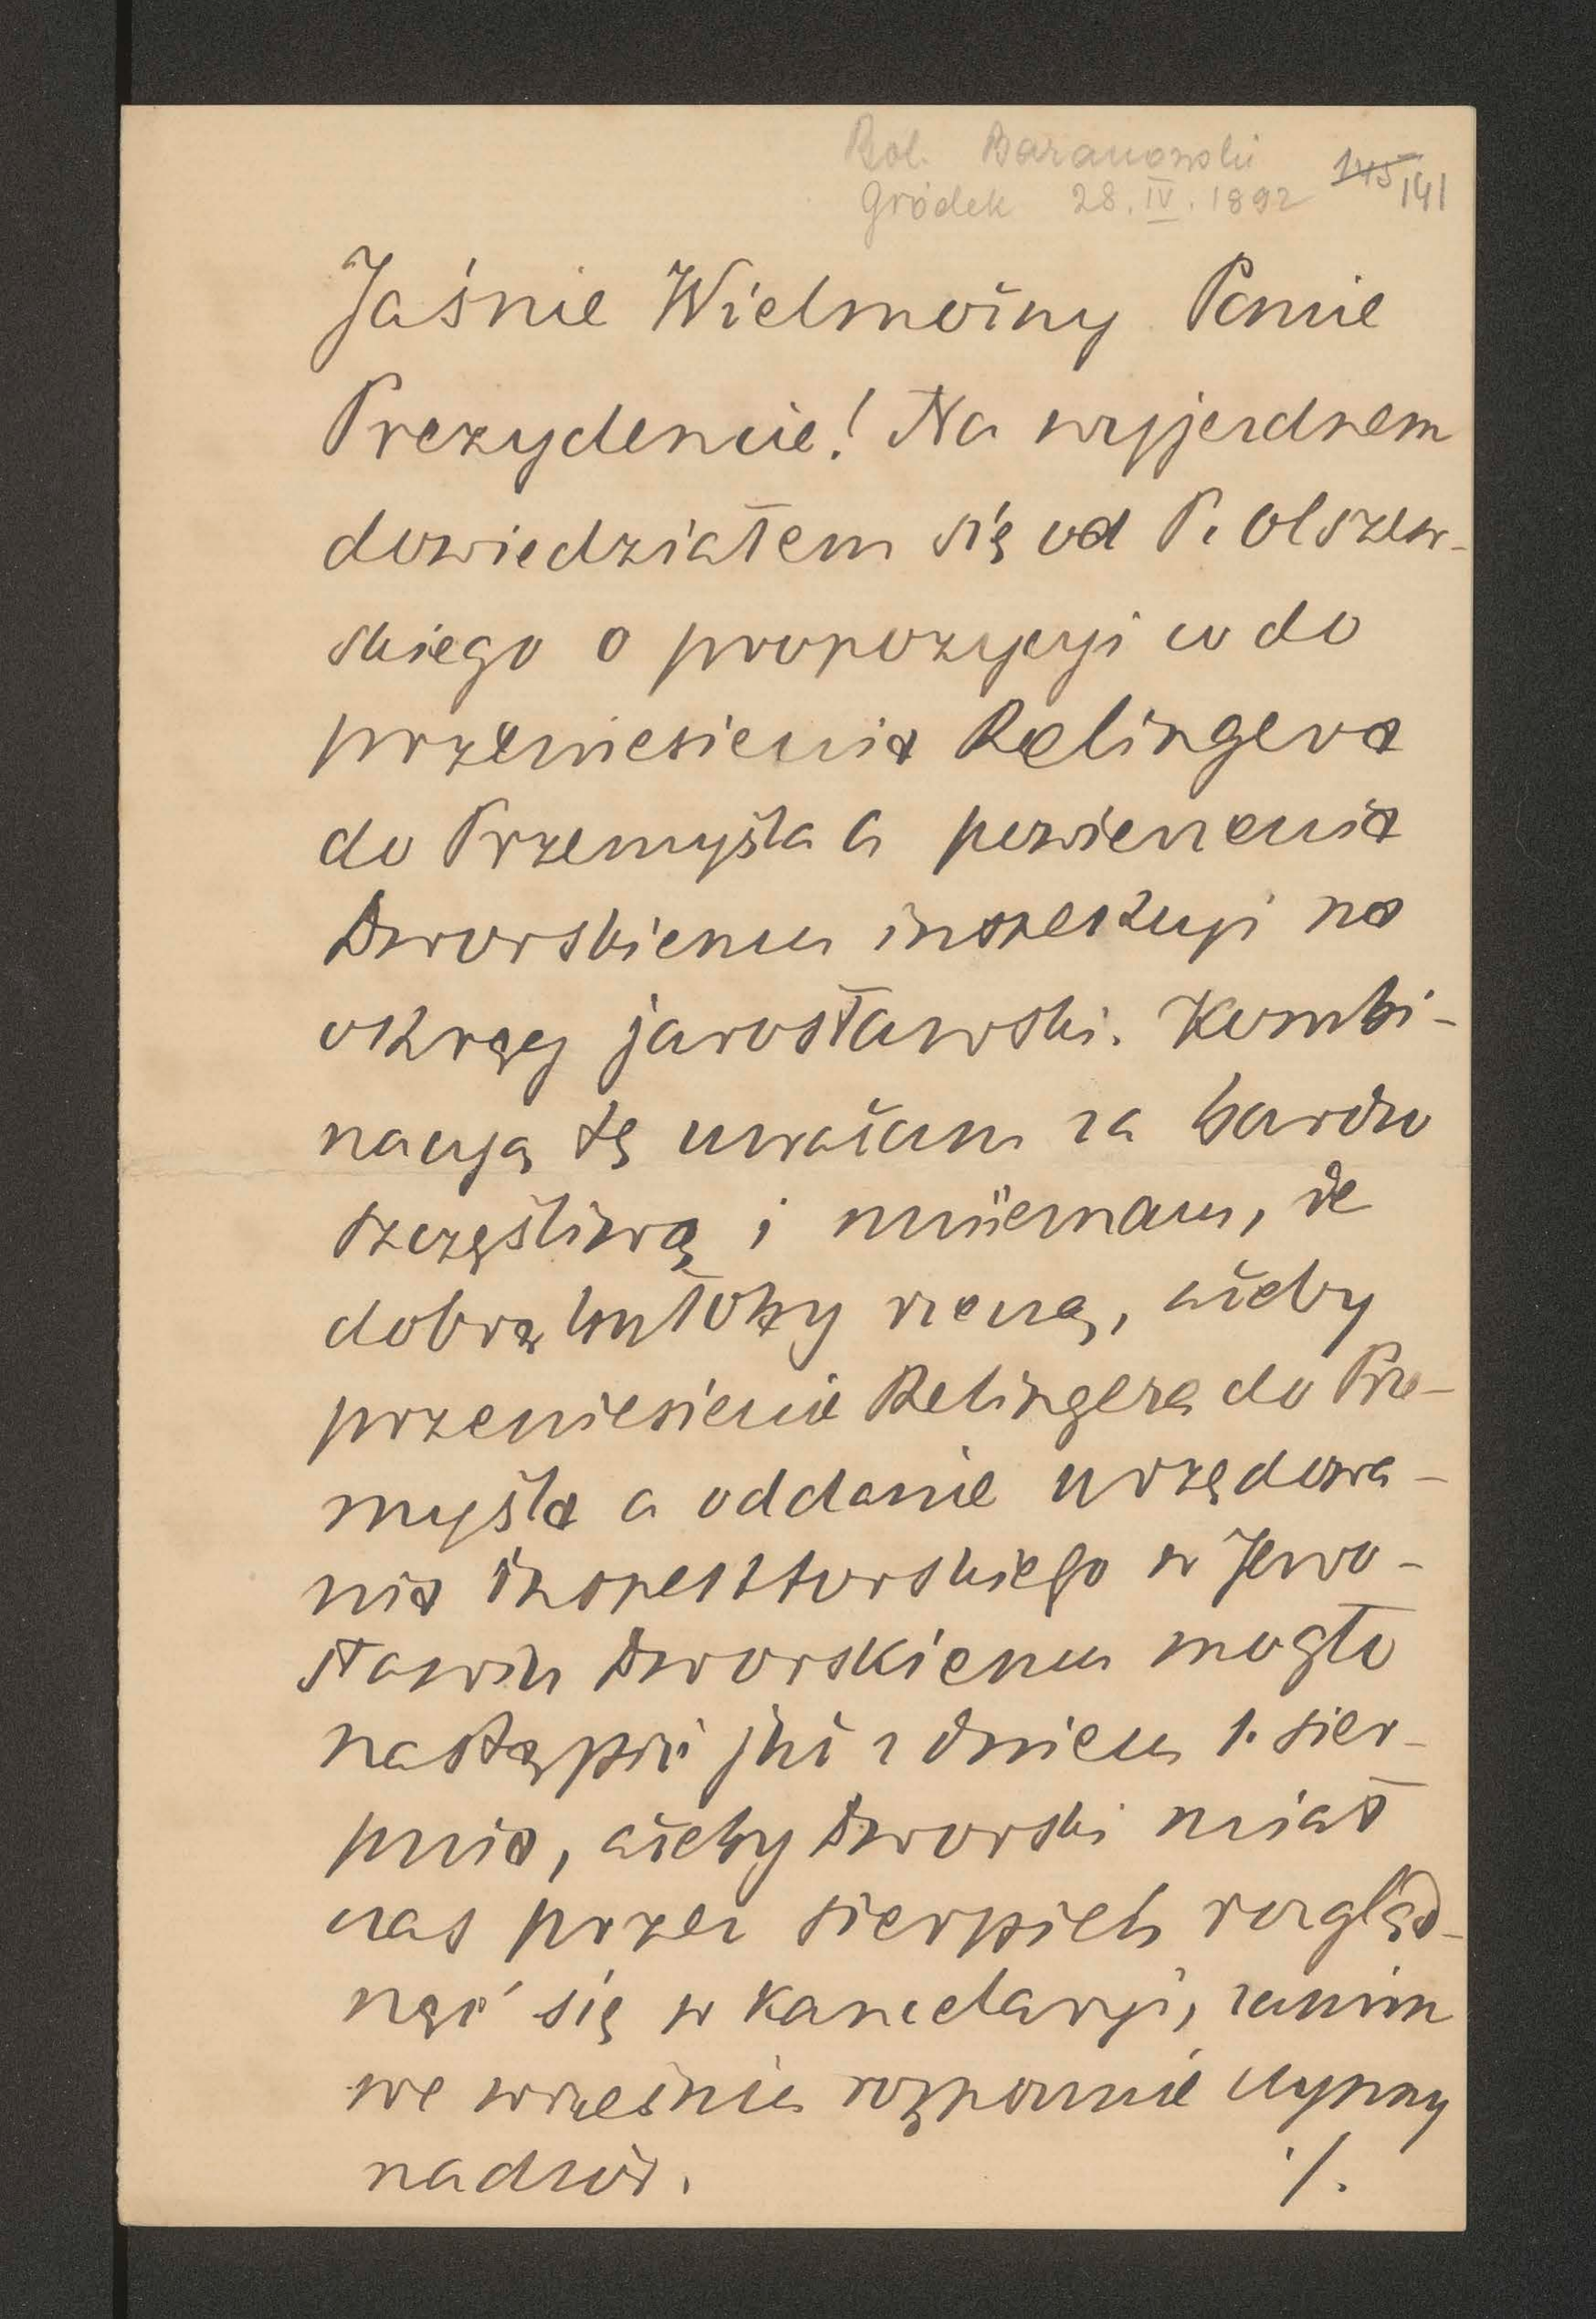 Bol. Baranowski
Gródek 28. IV. 1892 145 141
Jaśnie Wielmożny Panie
Prezydencie! Na wyjezdnem
dowiedziałem się od P. Olszew-
skiego o propozycyi co do
przeniesienia Relingera
do Przemyśla a powierzenia
Dworskiemu inspekcyi na
okręg jarosławski. Kombi-
nacyą tę uważam za bardzo
szczęśliwą i mniemam, że
dobrą byłoby rzeczą, ażeby
przeniesienie Relingera do Prze-
myśla a oddanie urzędowa-
nia inspektorskiego w Jaro-
sławiu Dworskiemu mogło
nastąpić już z dniem 1. sier-
pnia, ażeby Dworski miał
czas przez sierpień rozgląd-
nąć się w kancelaryi, zanim
we wrześniu rozpocznie czynny
nadzór. ./.